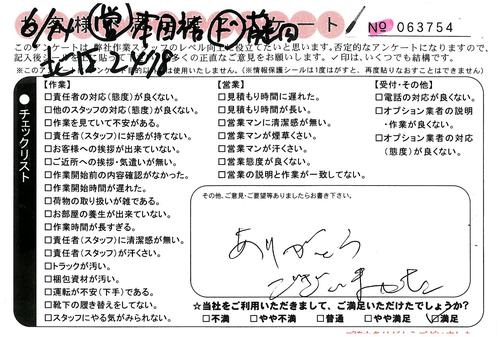 No 063754
このアンケートは、弊社作業スタッフのレベル向上に役立てたいと思います。否定的なアンケートになりますので、
ご意見をお願いします。✓印は、いくつでも結構です。
(※情報保護シールは1度がすと、再度貼りなおすことはできません)
チェックリスト
【作業】
□責任者の対応(態度)が良くない。
□他のスタッフの対応(態度)が良くない。
□作業を見ていて不安がある。
□責任者(スタッフ)に好感が持てない。
□お客様への挨拶が出来ていない。
□ご近所への挨拶・気遣いが無い。
□作業開始前の内容確認がなかった。
□作業開始時間が遅れた。
□荷物の取り扱いが雑である。
□お部屋の養生が出来ていない。
□作業時間が長すぎる。
□責任者(スタッフ)に清潔感が無い。
□責任者(スタッフ)が汗くさい。
□トラックが汚い。
□梱包資材が汚い。
□運転が不安(下手)である。
□靴下の履き替えをしてない。
□スタッフにやる気がみられない。
【営業】
□見積もり時間に遅れた。
□見積もり時間が長い。
□営業マンに清潔感が無い。
□営業マンが煙草くさい。
□営業マンが汗くさい。
□営業態度が良くない。
□営業の説明と作業が一致してない。
【受付・その他】
□電話の対応が良くない。
□オプション業者の説明
・作業が良くない。
□オプション業者の対応
(態度)が良くない。
その他、ご意見・ご要望等ありましたらお書き下さい。
ありがとう
ございました
☆当社をご利用いただきまして、ご満足いただけたでしょうか?
□不満 □やや不満 □普通 □やや満足 ☑満足